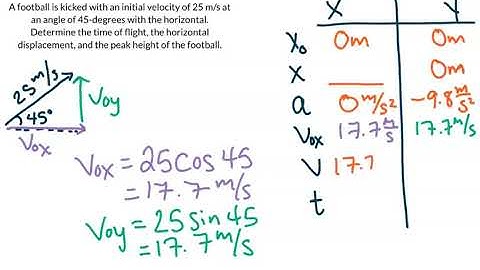 A football is kicked with an initial velocity of 25 m/s at
an angle of 45-degrees with the horizontal.
Determine the time of flight, the horizontal
displacement, and the peak height of the football.
25 m/s
45°
Voy
Vox
Vox = 25 cos 45
= 17.7 m/s
Voy = 25 sin 45
= 17.7 m/s
X Y
Xo 0m 0m
X 0m
a 0 m/s² -9.8 m/s²
Vox 17.7 m/s 17.7 m/s
V 17.7
t